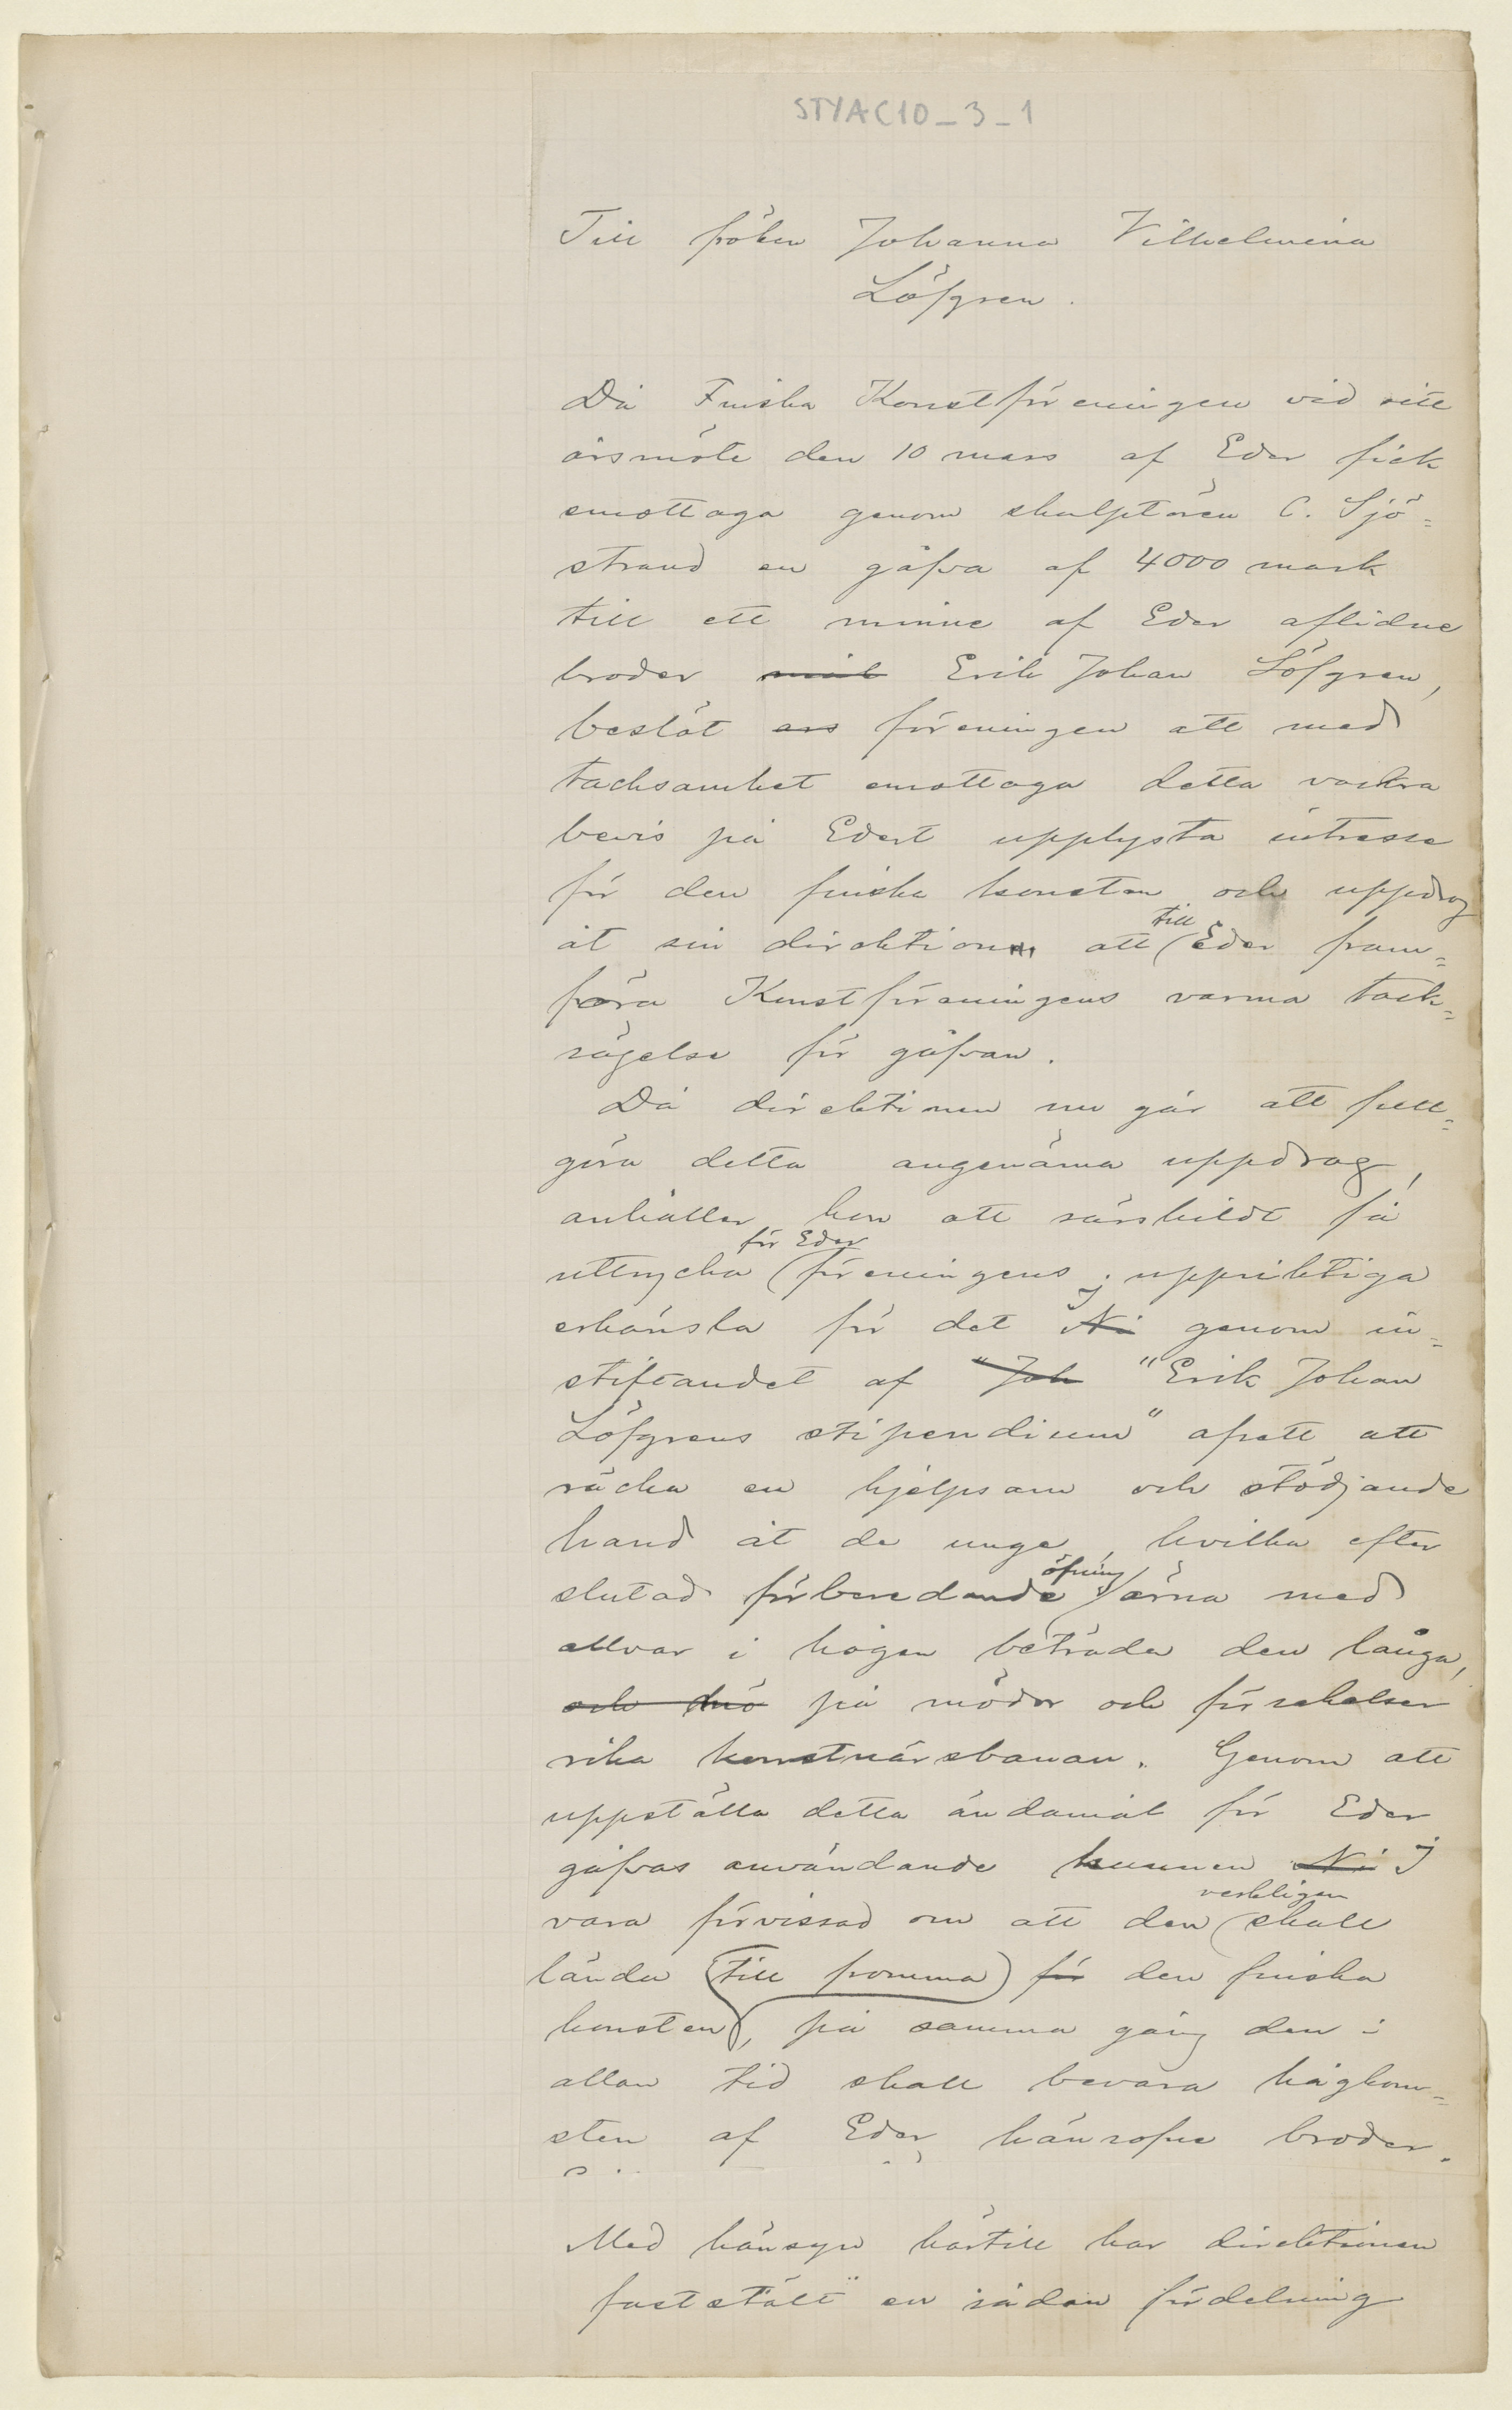 STYAC10_3_1
Till fröken Johanna Vilhelmina
Löfgren.
Då Finska Konstföreningen vid sitt
årsmöte den 10 mars af Eder fick
emottaga genom skulptören C. Sjö=
strand en gåfva af 4000 mark
till ett minne af Eder aflidne
broder Erik Johan Löfgren,
beslöt föreningen att med
tacksamhet emottaga detta vackra
bevis på Edert upplysta intresse
för den finska konsten och uppdrog
till
åt sin direktion att Eder fram=
föra Konstföreningens varma tack=
sägelse för gåfvan.
Då direktionen nu går att full=
göra detta angenäma uppdrag,
anhåller hon att särskildt få
för Eder
uttrycka föreningens uppriktiga
erkänsla för det Ni genom in=
stiftandet af "Joh "Erik Johan
Löfgrens stipendium" afsett att
räcka en hjelpsam och stödjande
hand åt de unge, hvilka efter
öfning
slutad förberedande ärna med
allvar i hågen beträda den långa,
och på mödor och försakelser
rika konstnärsbanan. Genom att
uppställa detta ändamål för Eder
gåfvas användande kunnen Ni I
verkligen
vara förvissad om att den skall
lända till fromma för den finska
konsten, på samma gång den i
allan tid skall bevara hågkom=
sten af Eder hänsofne broder.
Med hänsyn härtill har direktionen
fastställt en sådan fördelning